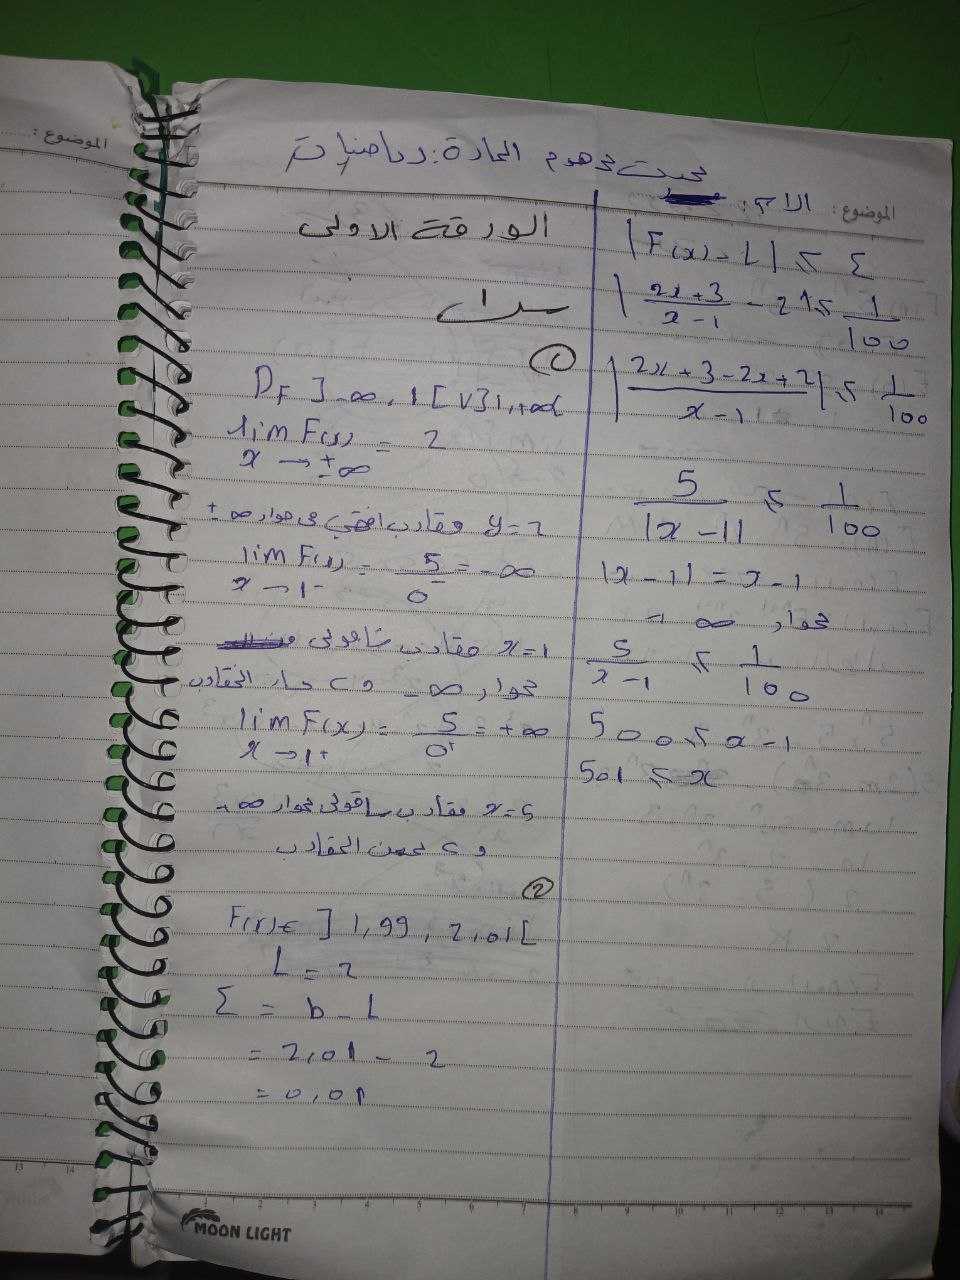 الموضوع:
محبت مجهوم المادة: رياضيات
الموضوع: الاسم:
الورقة الاولى
س1
①
DF ]-∞, 1[ ∪ ]1, +∞[
lim F(x) = 2
x → ±∞
y=2 مقارب افقي في جوار ±∞
lim F(x) = 5/0⁻ = -∞
x → 1⁻
x=1 مقارب شاقولي
بجوار -∞ و c يسار المقارب
lim F(x) = 5/0⁺ = +∞
x → 1⁺
x=5 مقارب شاقولي بجوار ∞
و c يمين المقارب
②
F(x) ∈ ]1,99 , 2,01[
L = 2
Σ = b - L
= 2,01 - 2
= 0,01
|F(x) - L| < ε
|2x+3/x-1 - 2| < 1/100
|2x+3-2x+2/x-1| < 1/100
5/|x-1| < 1/100
|x-1| = x-1
بجوار ∞
5/x-1 < 1/100
500 < x-1
501 < x
MOON LIGHT